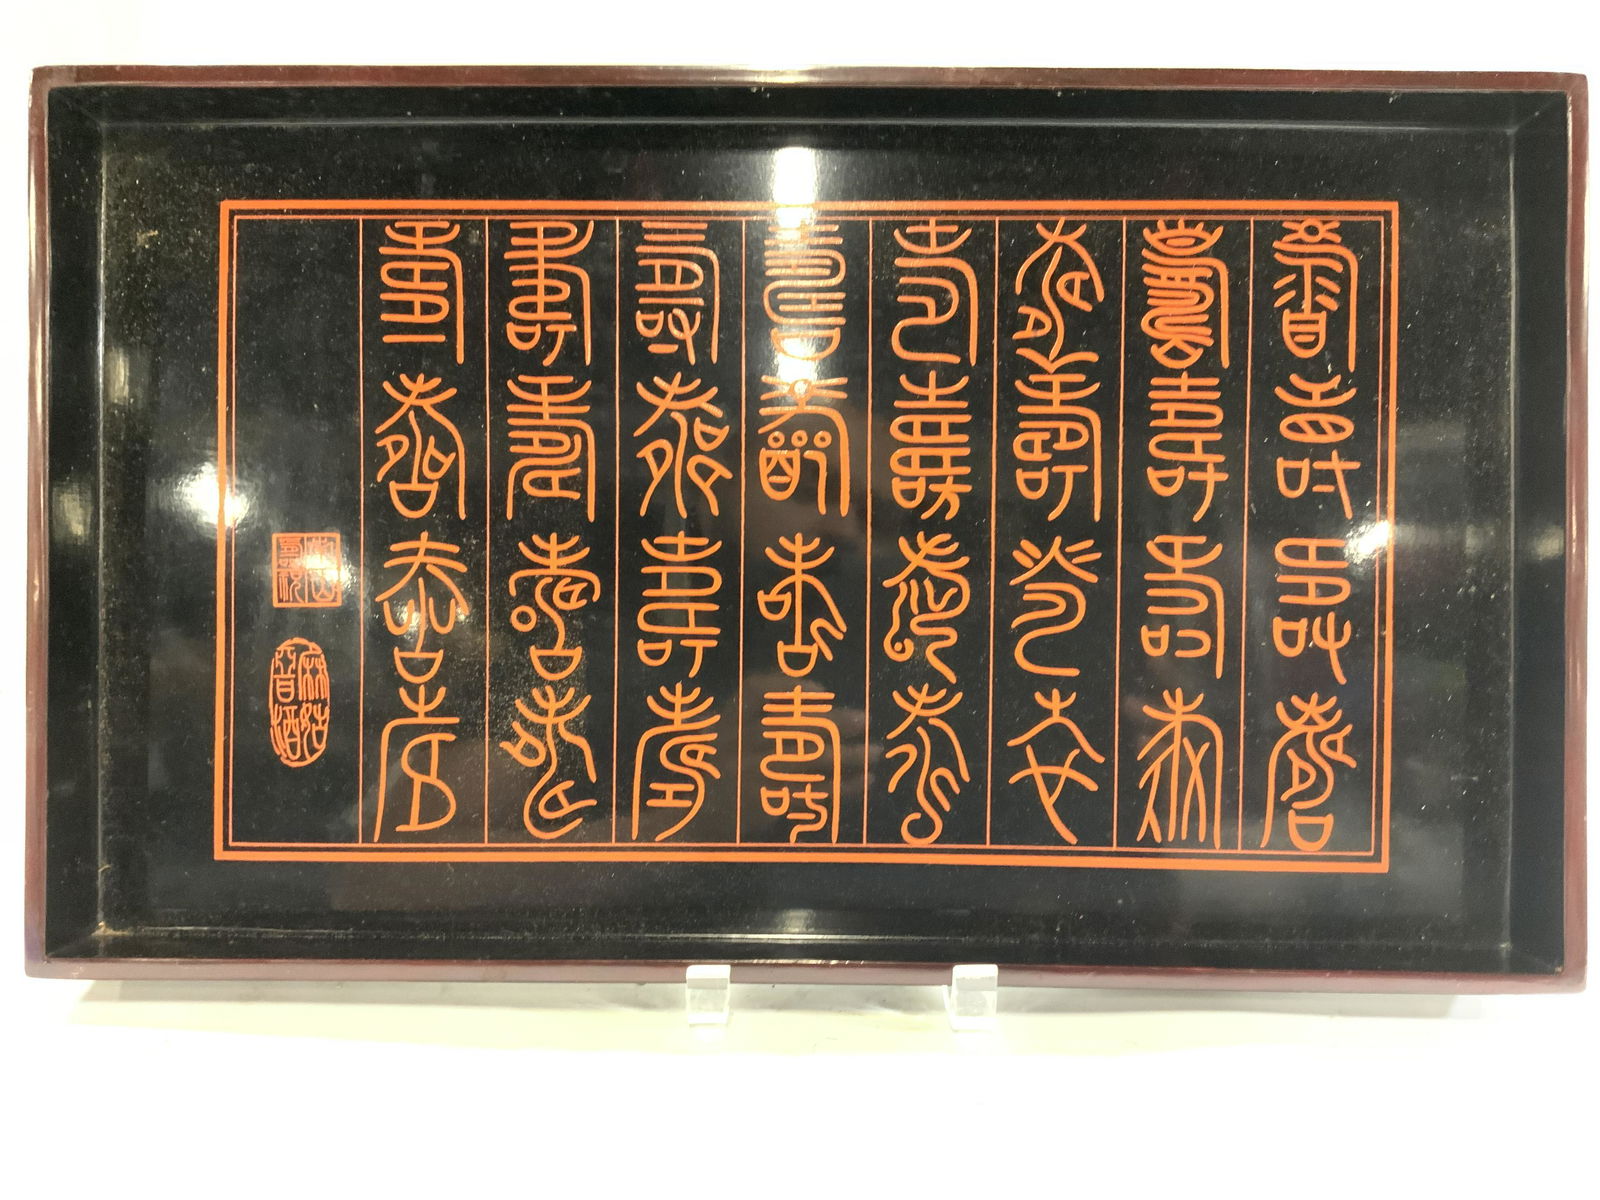 壽壽壽壽
壽壽壽壽
壽壽壽壽
壽壽壽壽
壽壽壽壽
壽壽壽壽
壽壽壽壽
壽壽壽壽
麻姑晉酒